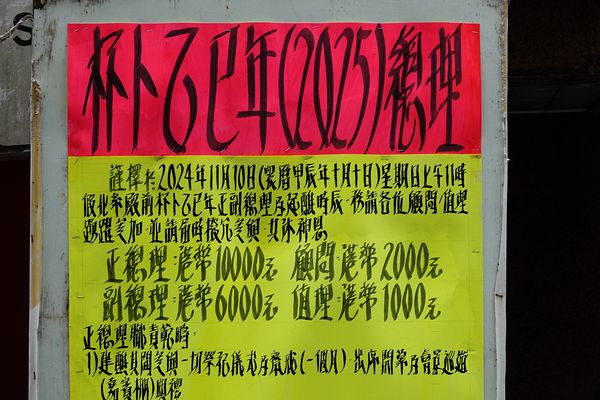 S
杯卜乙巳年(2025)總理
謹擇於2024年11月10日(農曆甲辰年十月十日)星期日上午11時
假北帝殿前杯卜乙巳年正副總理及起醮時辰,務請各位顧問,值理
踴躍參加,並請準時撥冗參與,共沐神恩
正總理:港幣10000元 顧問:港幣2000元
副總理:港幣6000元 值理:港幣1000元
正總理職責範疇:
1)建醮其間參與一切祭祀儀式及齋戒(一個月),出席開幕及會景巡遊
(嘉賓棚)典禮